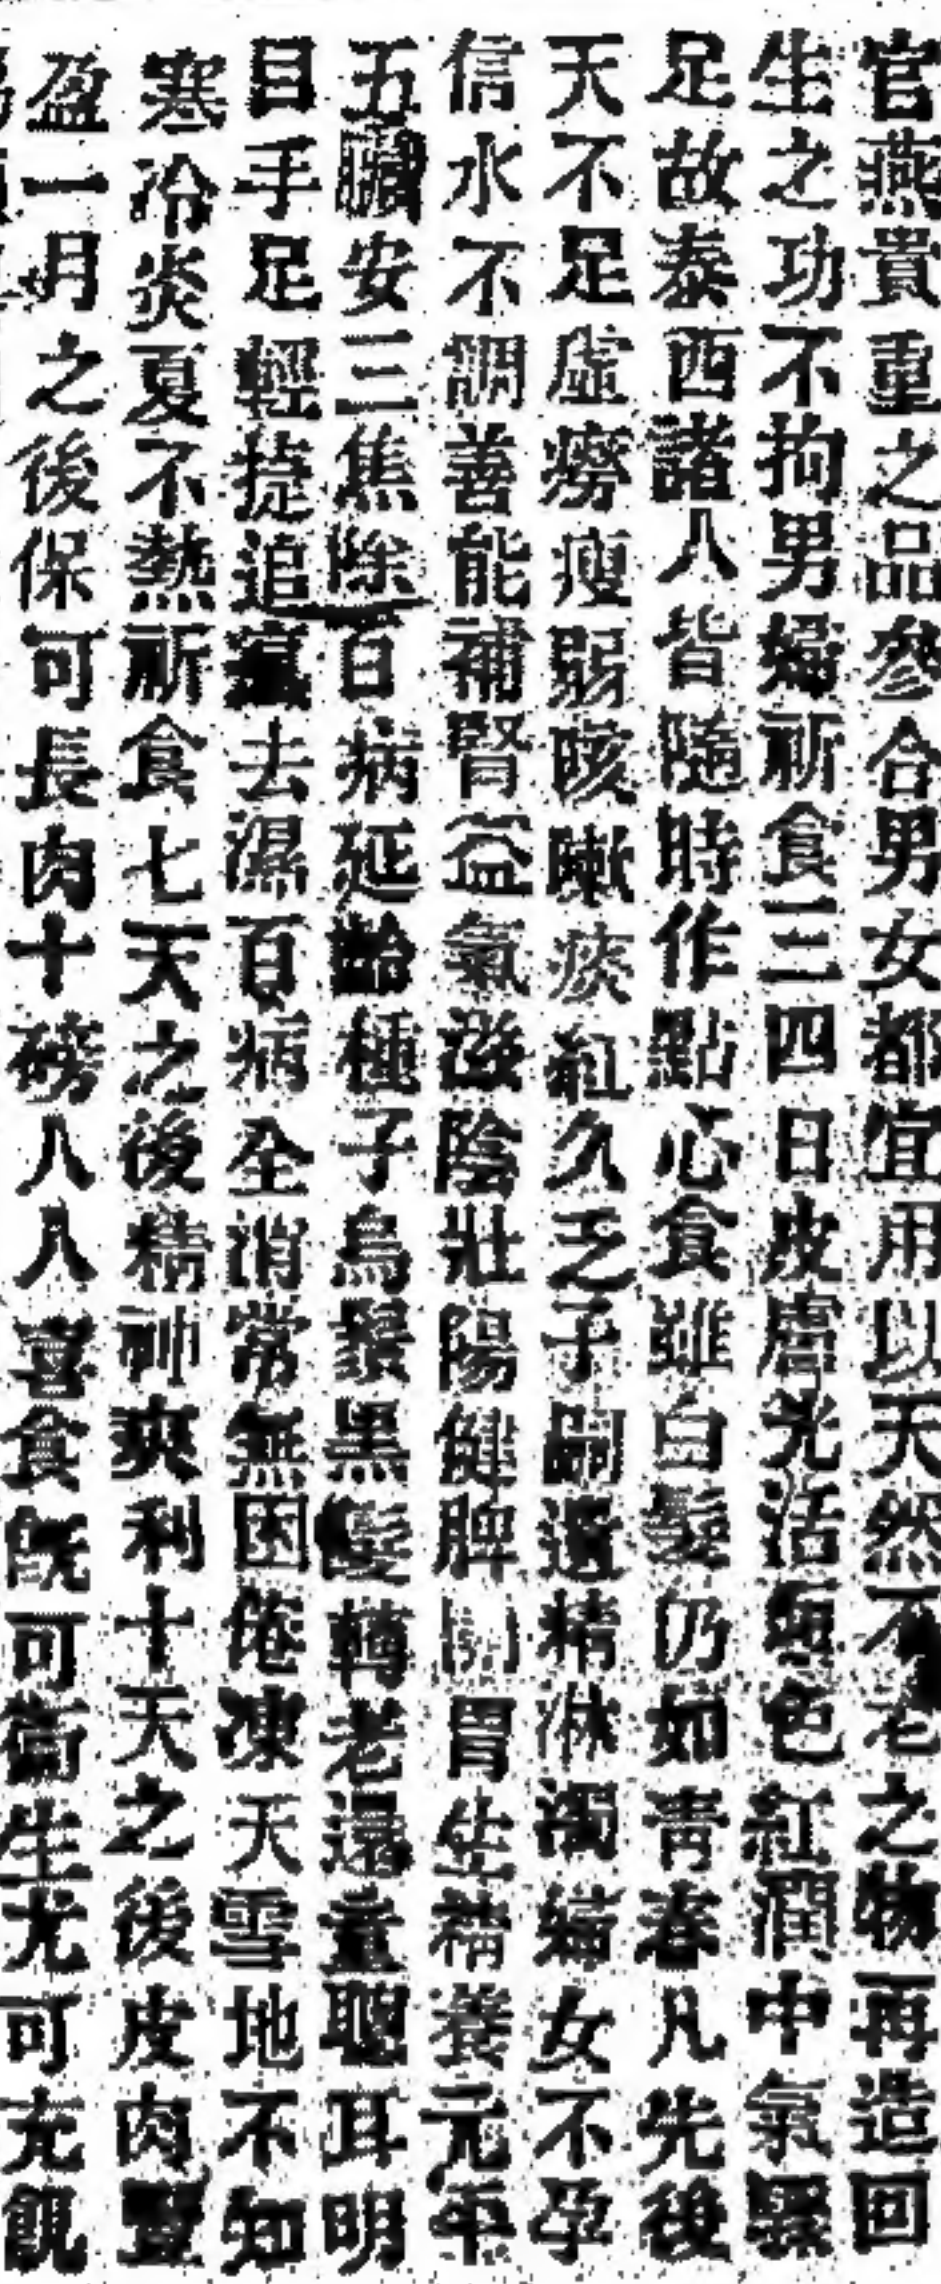 官燕貴重之品參合男女都宜用以天然不老之物再造回
生之功不拘男婦祈食三四日皮膚光活顏色紅潤中氣
足故泰西諸人皆隨時作點心食雖白髮仍如青春凡先後
天不足虛癆瘦弱咳嗽痰紅久乏子嗣遺精淋濁婦女不孕
信水不調善能補腎益氣滋陰壯陽健脾開胃生精養元平
五臟安三焦除百病延齡種子烏鬚黑髮轉老還童聰耳明
目手足輕捷追瘋去濕百病全消常無困倦凍天雪地不知
寒冷炎夏不熱祈食七天之後精神爽利十天之後皮肉豐
盈一月之後保可長肉十磅人人喜食旣可衛生尤可充飢